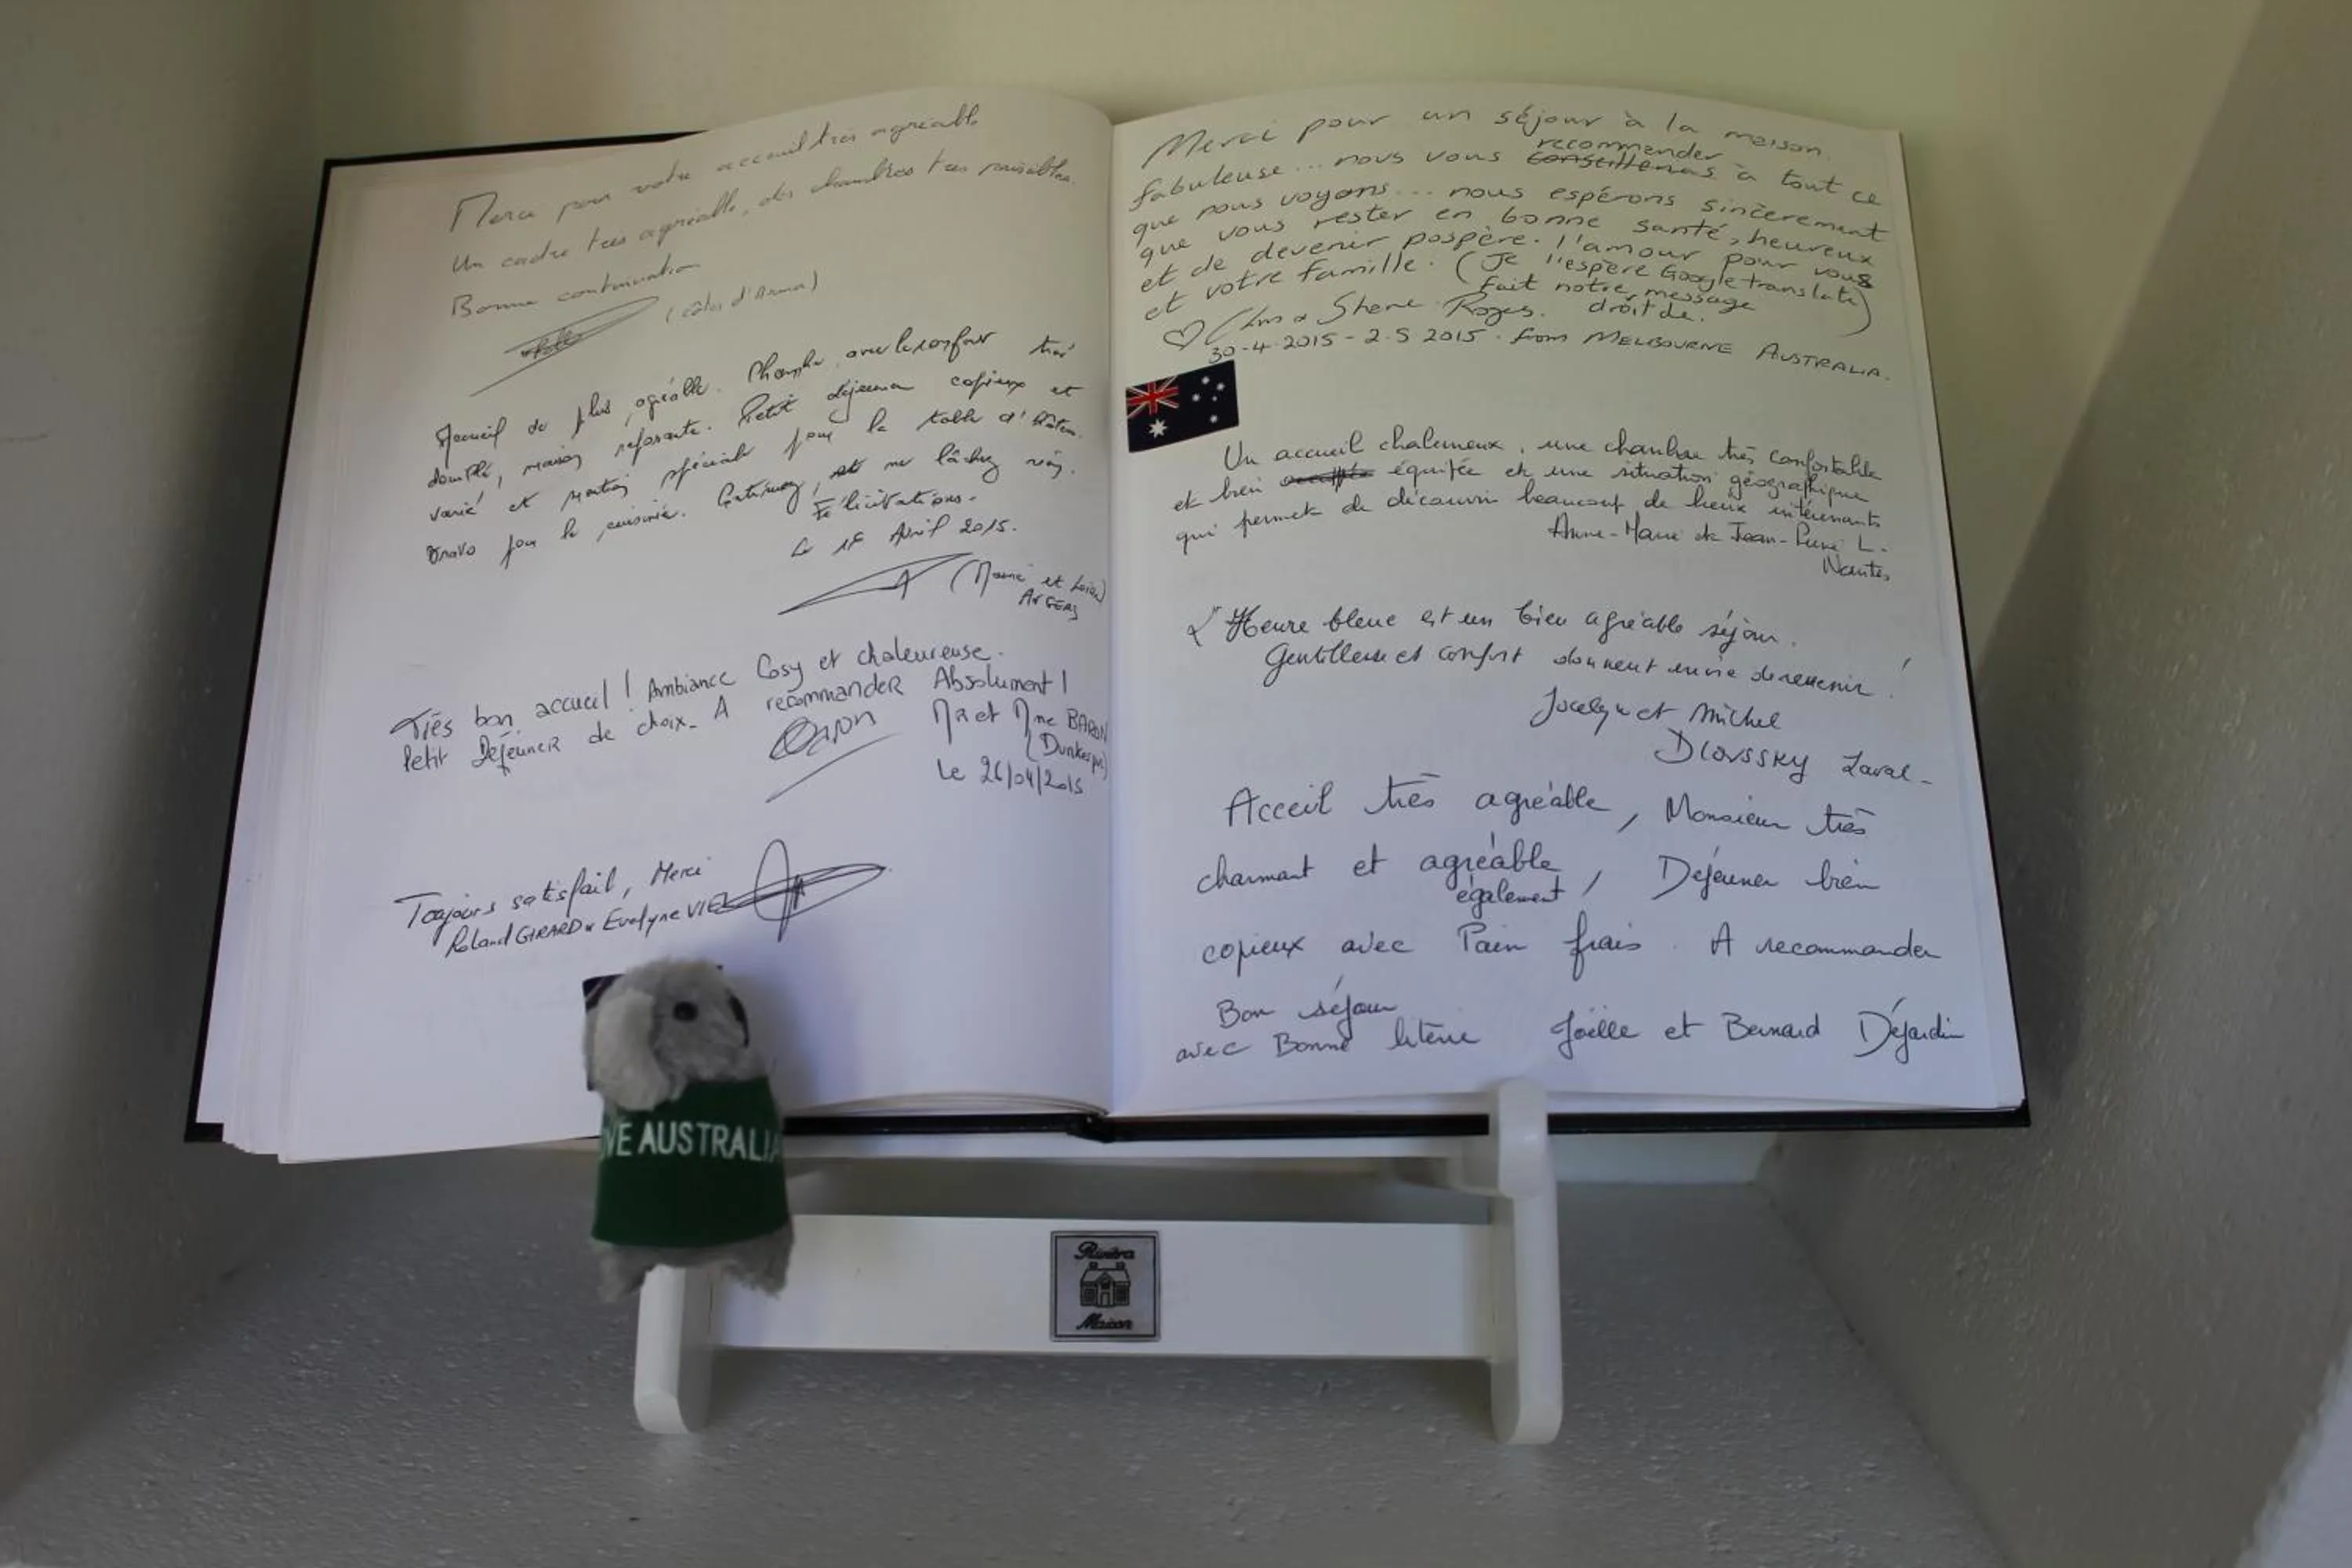 Merci pour votre accueil très agréable
Un cadre très agréable, des chambres très paisibles.
Bonne continuation
(Côtes d'Armor)
Accueil de plus agréable. Chambre avec le confort
douillet, maison reposante. Petit déjeuner copieux et
varié et mention spéciale pour la table d'hôtes.
Bravo pour la cuisinière. Continuez, et ne lâchez rien.
Félicitations.
Le 15 Avril 2015.
et
ANGERS
Très bon accueil ! Ambiance Cosy et chaleureuse.
Petit Déjeuner de choix. A recommander Absolument !
Baron Mr et Mme BARON
(Dunkerque)
Le 26/04/2015
Toujours satisfait, Merci
Roland GIRARD & Evelyne
Merci pour un séjour à la maison
recommander
fabuleuse... nous vous conseillerons à tout ce
que nous voyons... nous espérons sincèrement
que vous rester en bonne santé, heureux
et de devenir pospère. l'amour pour vous
et votre famille. (Je l'espère Google translate
fait notre message
droit de.)
♡ & Shane 
30-4-2015 - 2.5.2015. from MELBOURNE AUSTRALIA.
Un accueil chaleureux, une chambre très confortable
et bien équipée et une situation géographique
qui permet de découvrir beaucoup de lieux intéressants
Anne-Marie et Jean-Pierre L.
Nantes
L'Heure bleue est un bien agréable séjour.
Gentillesse et confort donnent envie de revenir !
Jocelyn et Michel
Laval-
Acceil très agréable, Monsieur très
charmant et agréable
également, Déjeuner bien
copieux avec Pain frais. A recommander
Bon séjour
avec Bonne literie Joëlle et Bernard Déjardin
VE AUSTRALIA
Rivièra
Maison